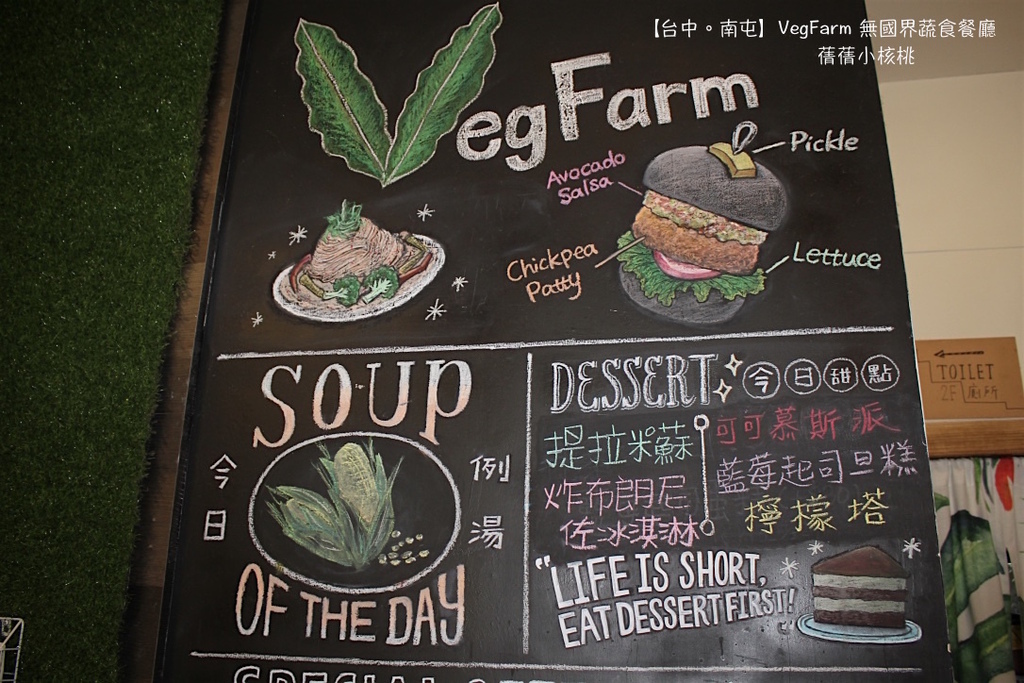 【台中。南屯】VegFarm 無國界蔬食餐廳
蓓蓓小核桃
VegFarm
Avocado
Salsa
Pickle
Chickpea
Patty
Lettuce
SOUP
今日
例湯
OF THE DAY
DESSERT 今日甜點
提拉米蘇
炸布朗尼
佐冰淇淋
可可慕斯派
藍莓起司旦糕
檸檬塔
"LIFE IS SHORT,
EAT DESSERT FIRST!"
TOILET
2F 廁所